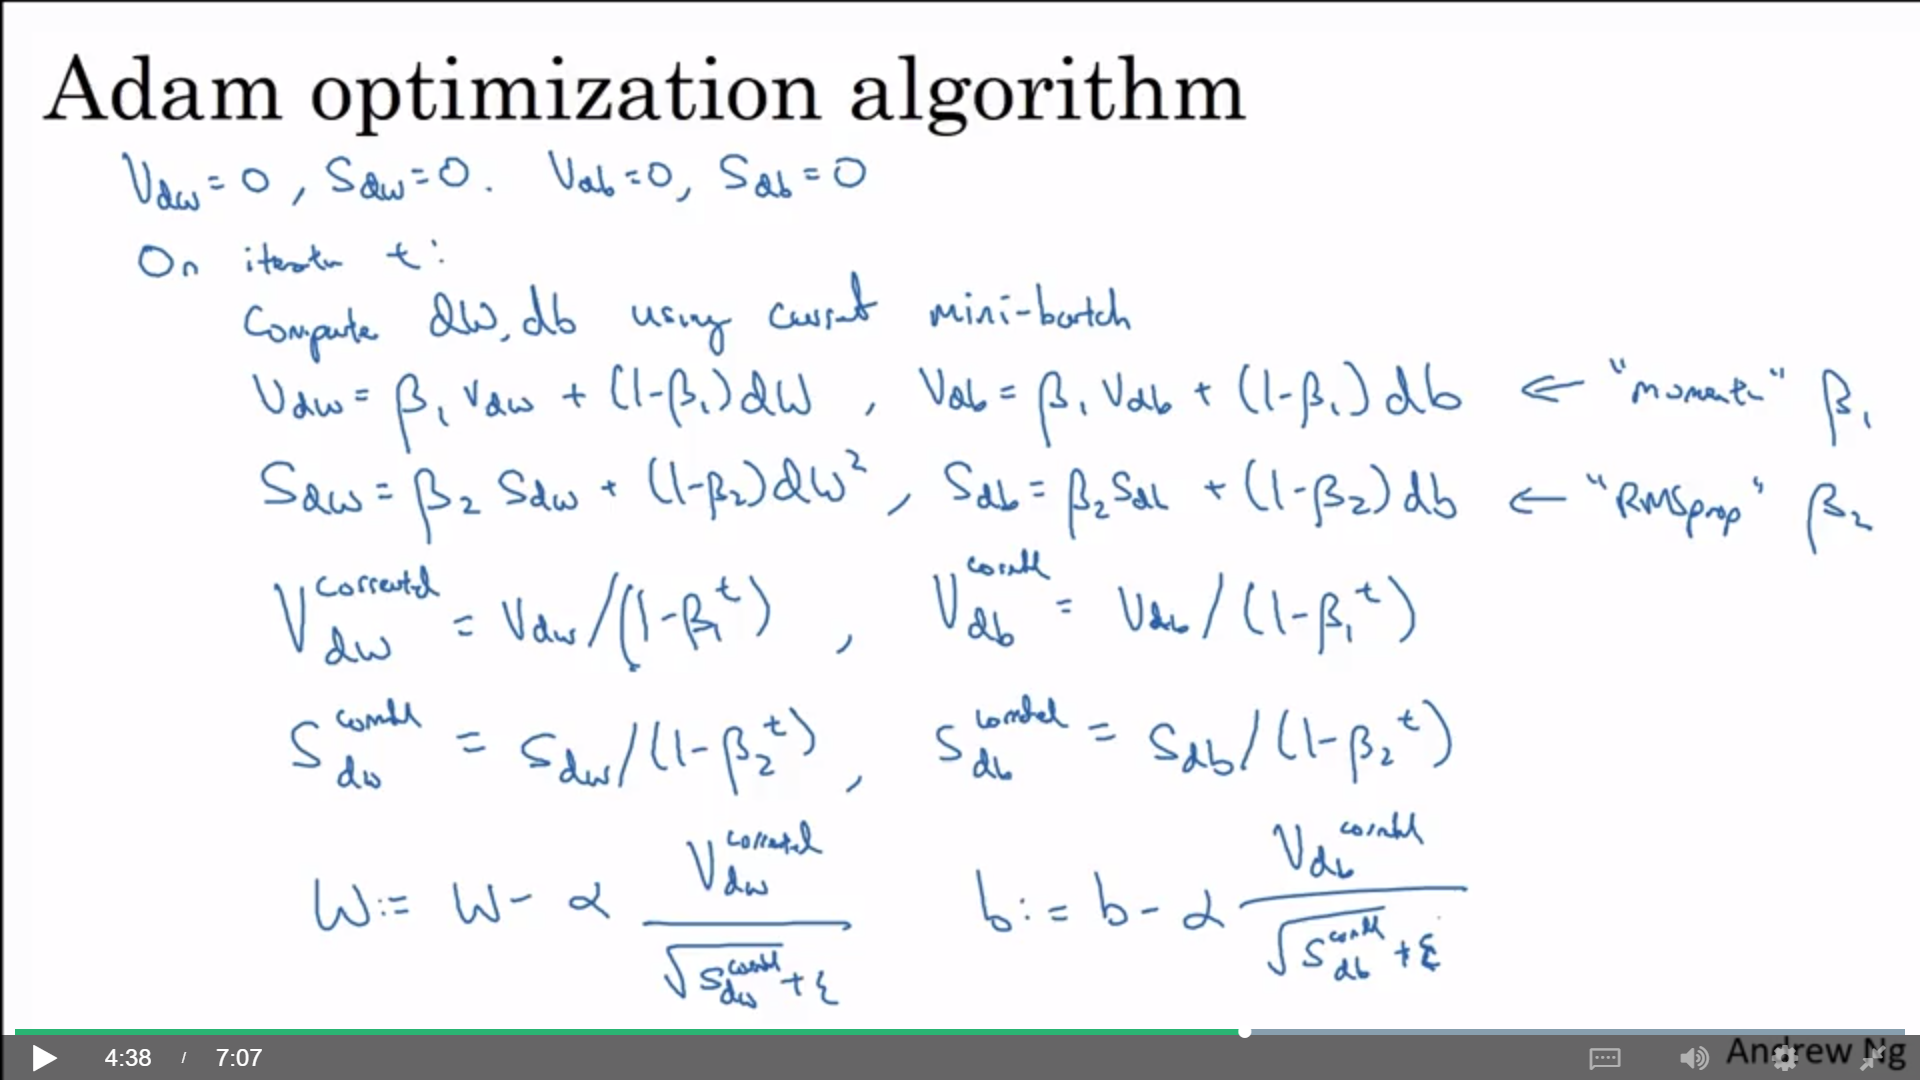 Adam optimization algorithm
V_dw = 0, S_dw = 0. V_db = 0, S_db = 0
On iteratn t:
Compute dW, db using current mini-batch
V_dw = β₁ V_dw + (1-β₁) dW, V_db = β₁ V_db + (1-β₁) db ← "moment" β₁
S_dw = β₂ S_dw + (1-β₂) dW², S_db = β₂ S_db + (1-β₂) db ← "RMSprop" β₂
V_dw^corrected = V_dw / (1-β₁^t), V_db^corrected = V_db / (1-β₁^t)
S_dw^corrected = S_dw / (1-β₂^t), S_db^corrected = S_db / (1-β₂^t)
W := W - α V_dw^corrected / (√S_dw^corrected + ε) b := b - α V_db^corrected / (√S_db^corrected + ε)
4:38 / 7:07
Andrew Ng